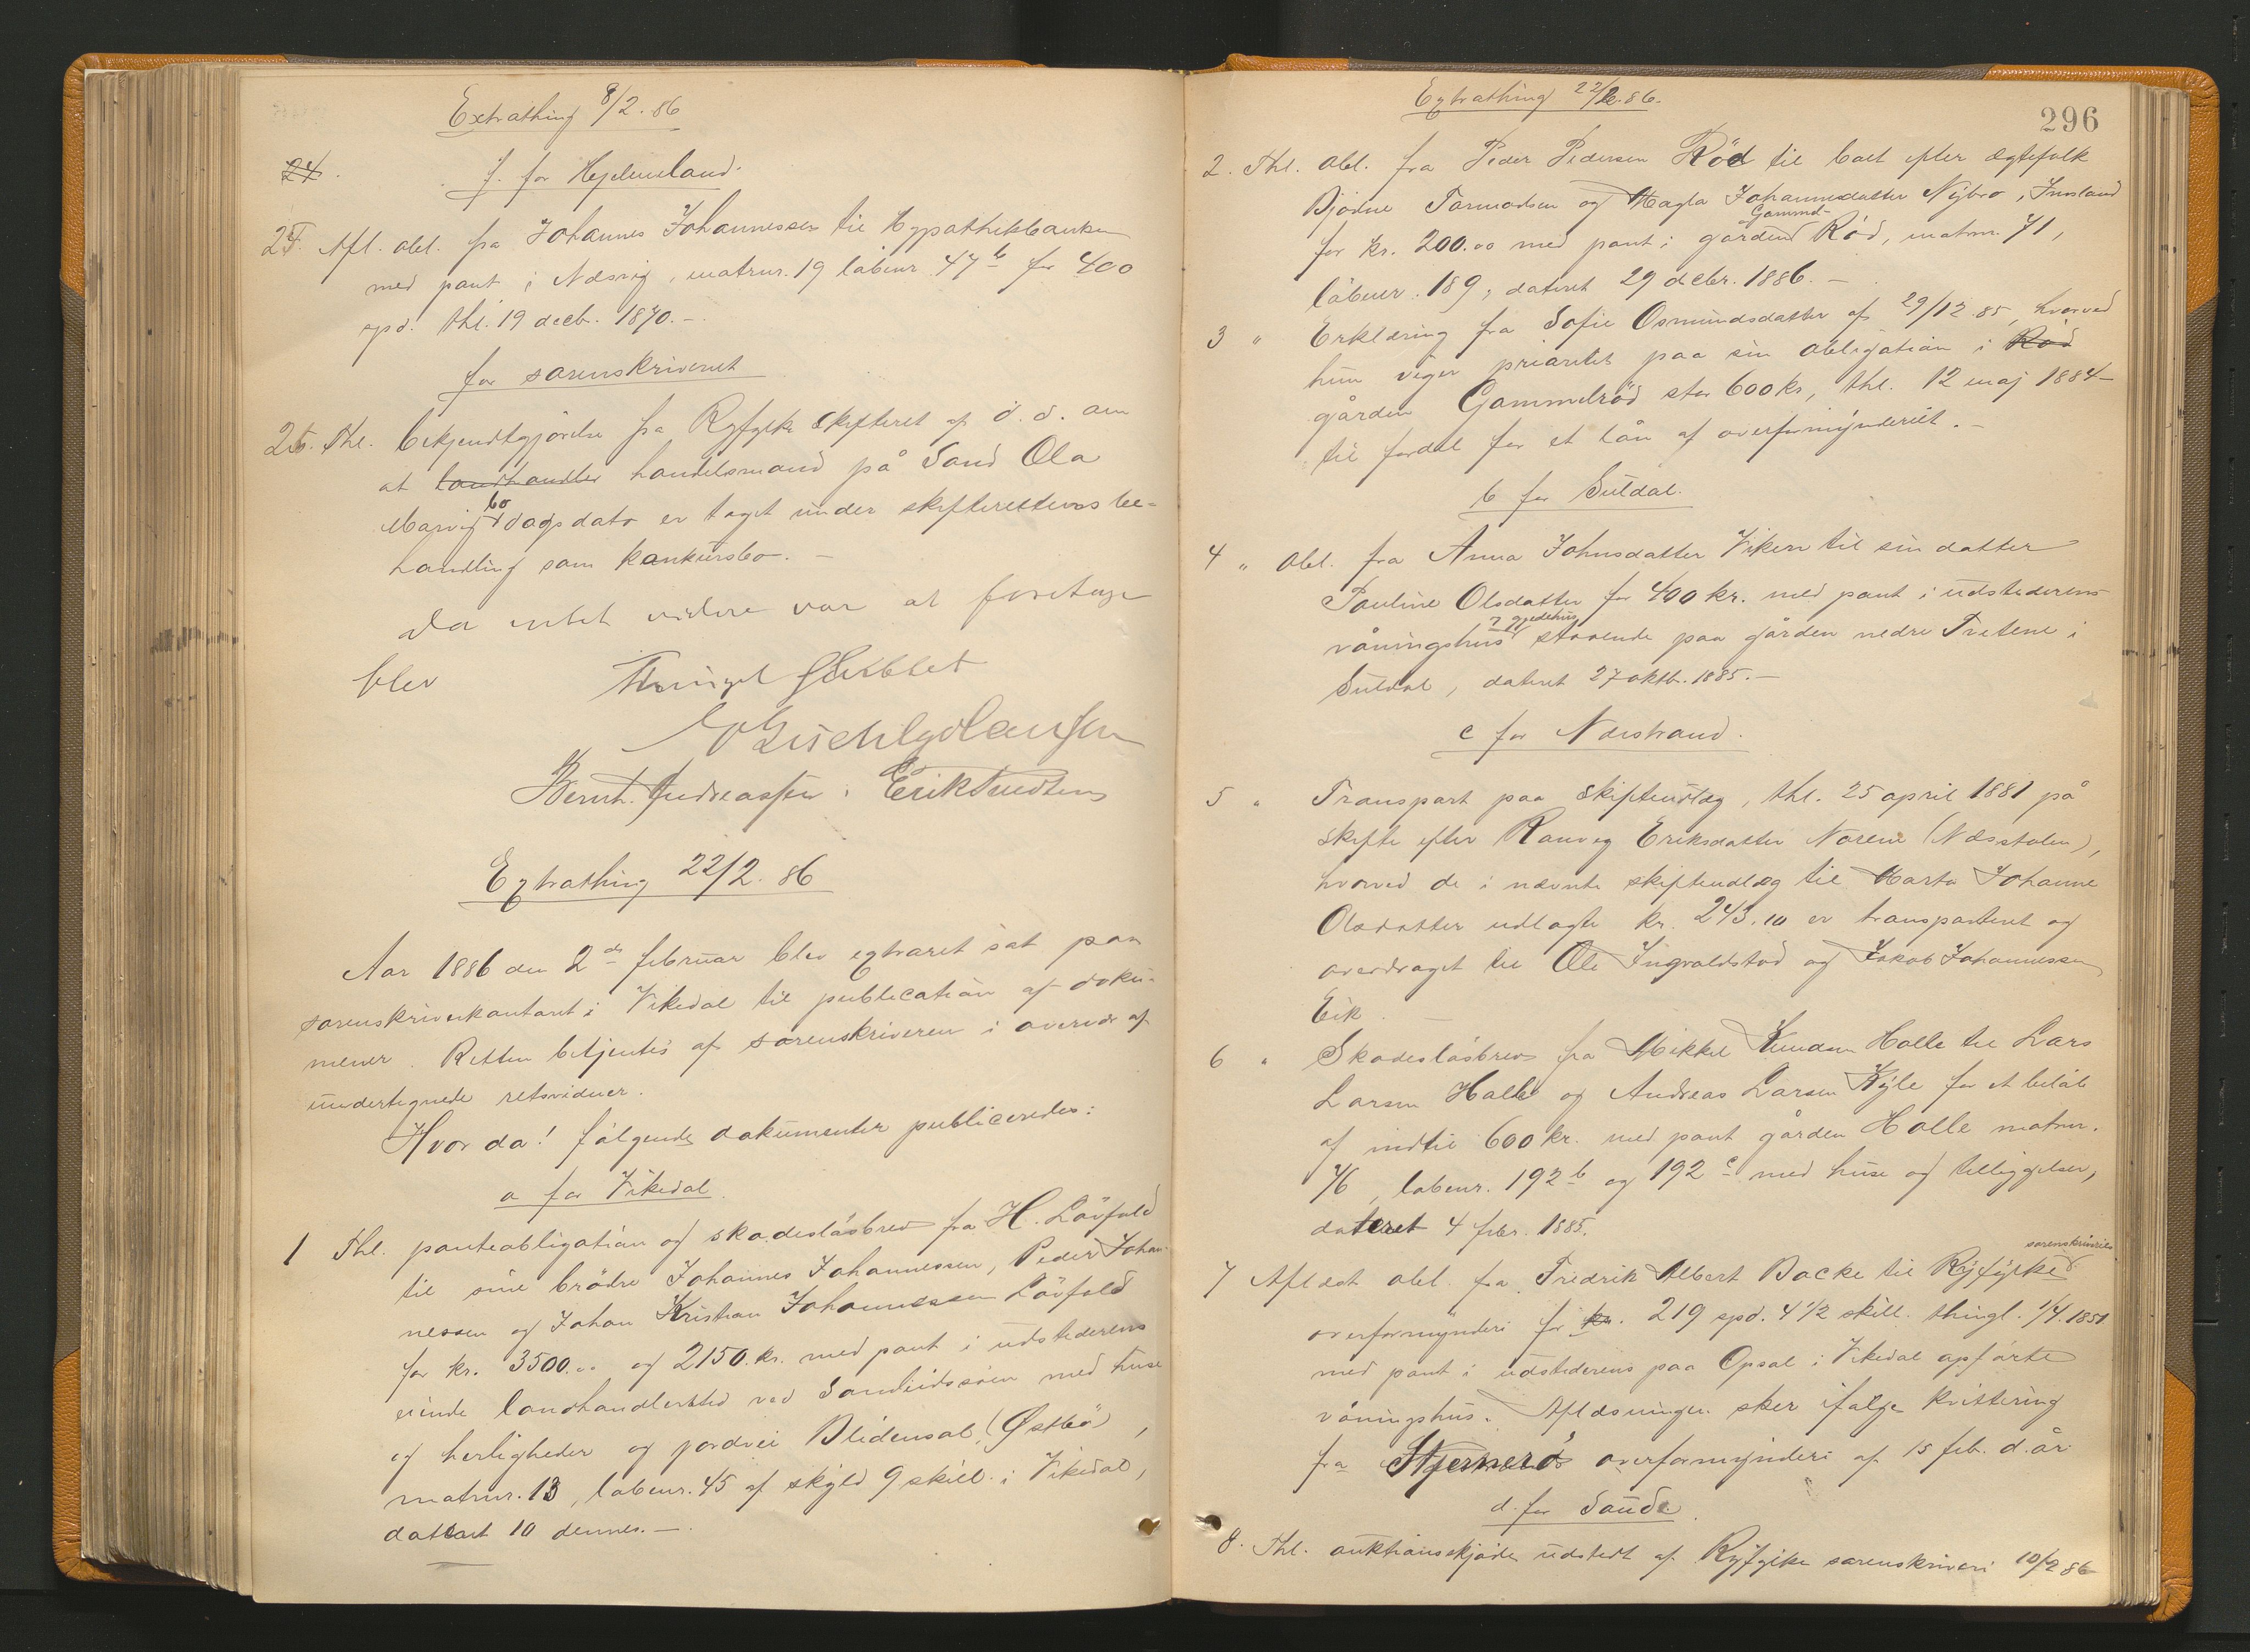 Extrathing 8/2. 86
24.
f. for Hjelmeland.
25. Afl. obl. fra Johannes Johannessen til Hypothekbanken
med pant i Næsvig, matrnr. 19 løbenr. 47 b for 400
spd. thl. 19 decb. 1870. -
for sorenskriveriet
26. Thl. bekjendtgjørelse fra Ryfylke skifteret af d. d. om
at landhandler handelsmand på Sand Ola
Marvig bo dags dato er taget under skifterettens be-
handling som konkursbo. -
Da intet videre var at foretage
blev Thinget sluttet
Bernh. Andreassen. Erik Knudsen
Extrathing 22/2. 86
Aar 1886 den 2 de februar blev extraret sat paa
sorenskriverkontoret i Vikedal til publication af doku-
menter. Retten betjentes af sorenskriveren i overvær af
undertegnede retsvidner.
Hvor da! følgende dokumenter publiceredes:
a for Vikedal
1 Thl. panteobligation og skadesløsbrev fra H. Løvfald
til sine brødre Johannes Johannessen, Peder Johan-
nessen og Johan Kristian Johannessen Løvfald
for kr. 3500.00 og 2150. kr. med pant i udstederens
eiende landhandlersted ved Sandeidssøen med huse
og herligheder og jordvei Blidensol (Østbø),
matrnr. 13, løbenr. 45 af skyld 9 skill. i Vikedal,
datert 10 dennes. -
Extrathing 22/2. 86.
296
2. Thl. obl. fra Peder Pedersen Rød til boet efter ægtefolk
Bjørne Tormodsen og Magla Johannesdatter Nybro, Imsland
for kr. 200.00 med pant i gården Gammel- Rød, matrnr. 71,
løbenr. 189, dateret 29 decbr. 1886. -
3 " Erklæring fra Sofie Osmundsdatter af 29/12 85, hvorved
hun viger prioritet paa sin obligation i Rød
gården Gammelrød stor 600 kr, thl. 12 maj 1884
til fordel for et lån af overformynderiet. -
b for Suldal.
4 " Obl. fra Anna Johnsdatter Viken til sin datter
Pauline Olsdatter for 400 kr. med pant i udstederens
våningshus & gjedehus staaende paa gården nedre Tvetene i
Suldal, dateret 27 oktbr. 1885. -
c for Nærstrand.
5 " Transport paa skifteudlæg, thl. 25 april 1881 på
skifte efter Ranveg Eriksdatter Norene (Næsstølen),
hvorved de i nævnte skifteudlæg til Marta Johanne
Olsdatter udlagte kr. 243.10 er transporteret og
overdraget til Ole Ingvaldstad og Jakob Johannessen
Eik. -
6 " Skadesløsbrev fra Mikkel Knudsen Halle til Lars
Larsen Halle og Andreas Larsen Kyle for et beløb
af indtil 600 kr. med pant gården Halle matrnr.
76, løbenr. 192 b og 192 c med huse og tilliggelser,
dateret 4 febr. 1885.
7 Aflæst obl. fra Fredrik Albert Backe til Ryfylke sorenskriveries
overformynderi for kr. 219 spd. 4 1/2 skill. thingl. 1/4. 1851
med pant i udstederens paa Opsal i Vikedal opførte
våningshus. Aflæsningen sker ifølge kvittering
fra Stjernerø overformynderi af 15 feb. d. år
d. for Saude.
8. Thl. auktionsskjøde udstedt af Ryfylke sorenskriveri 10/2 86